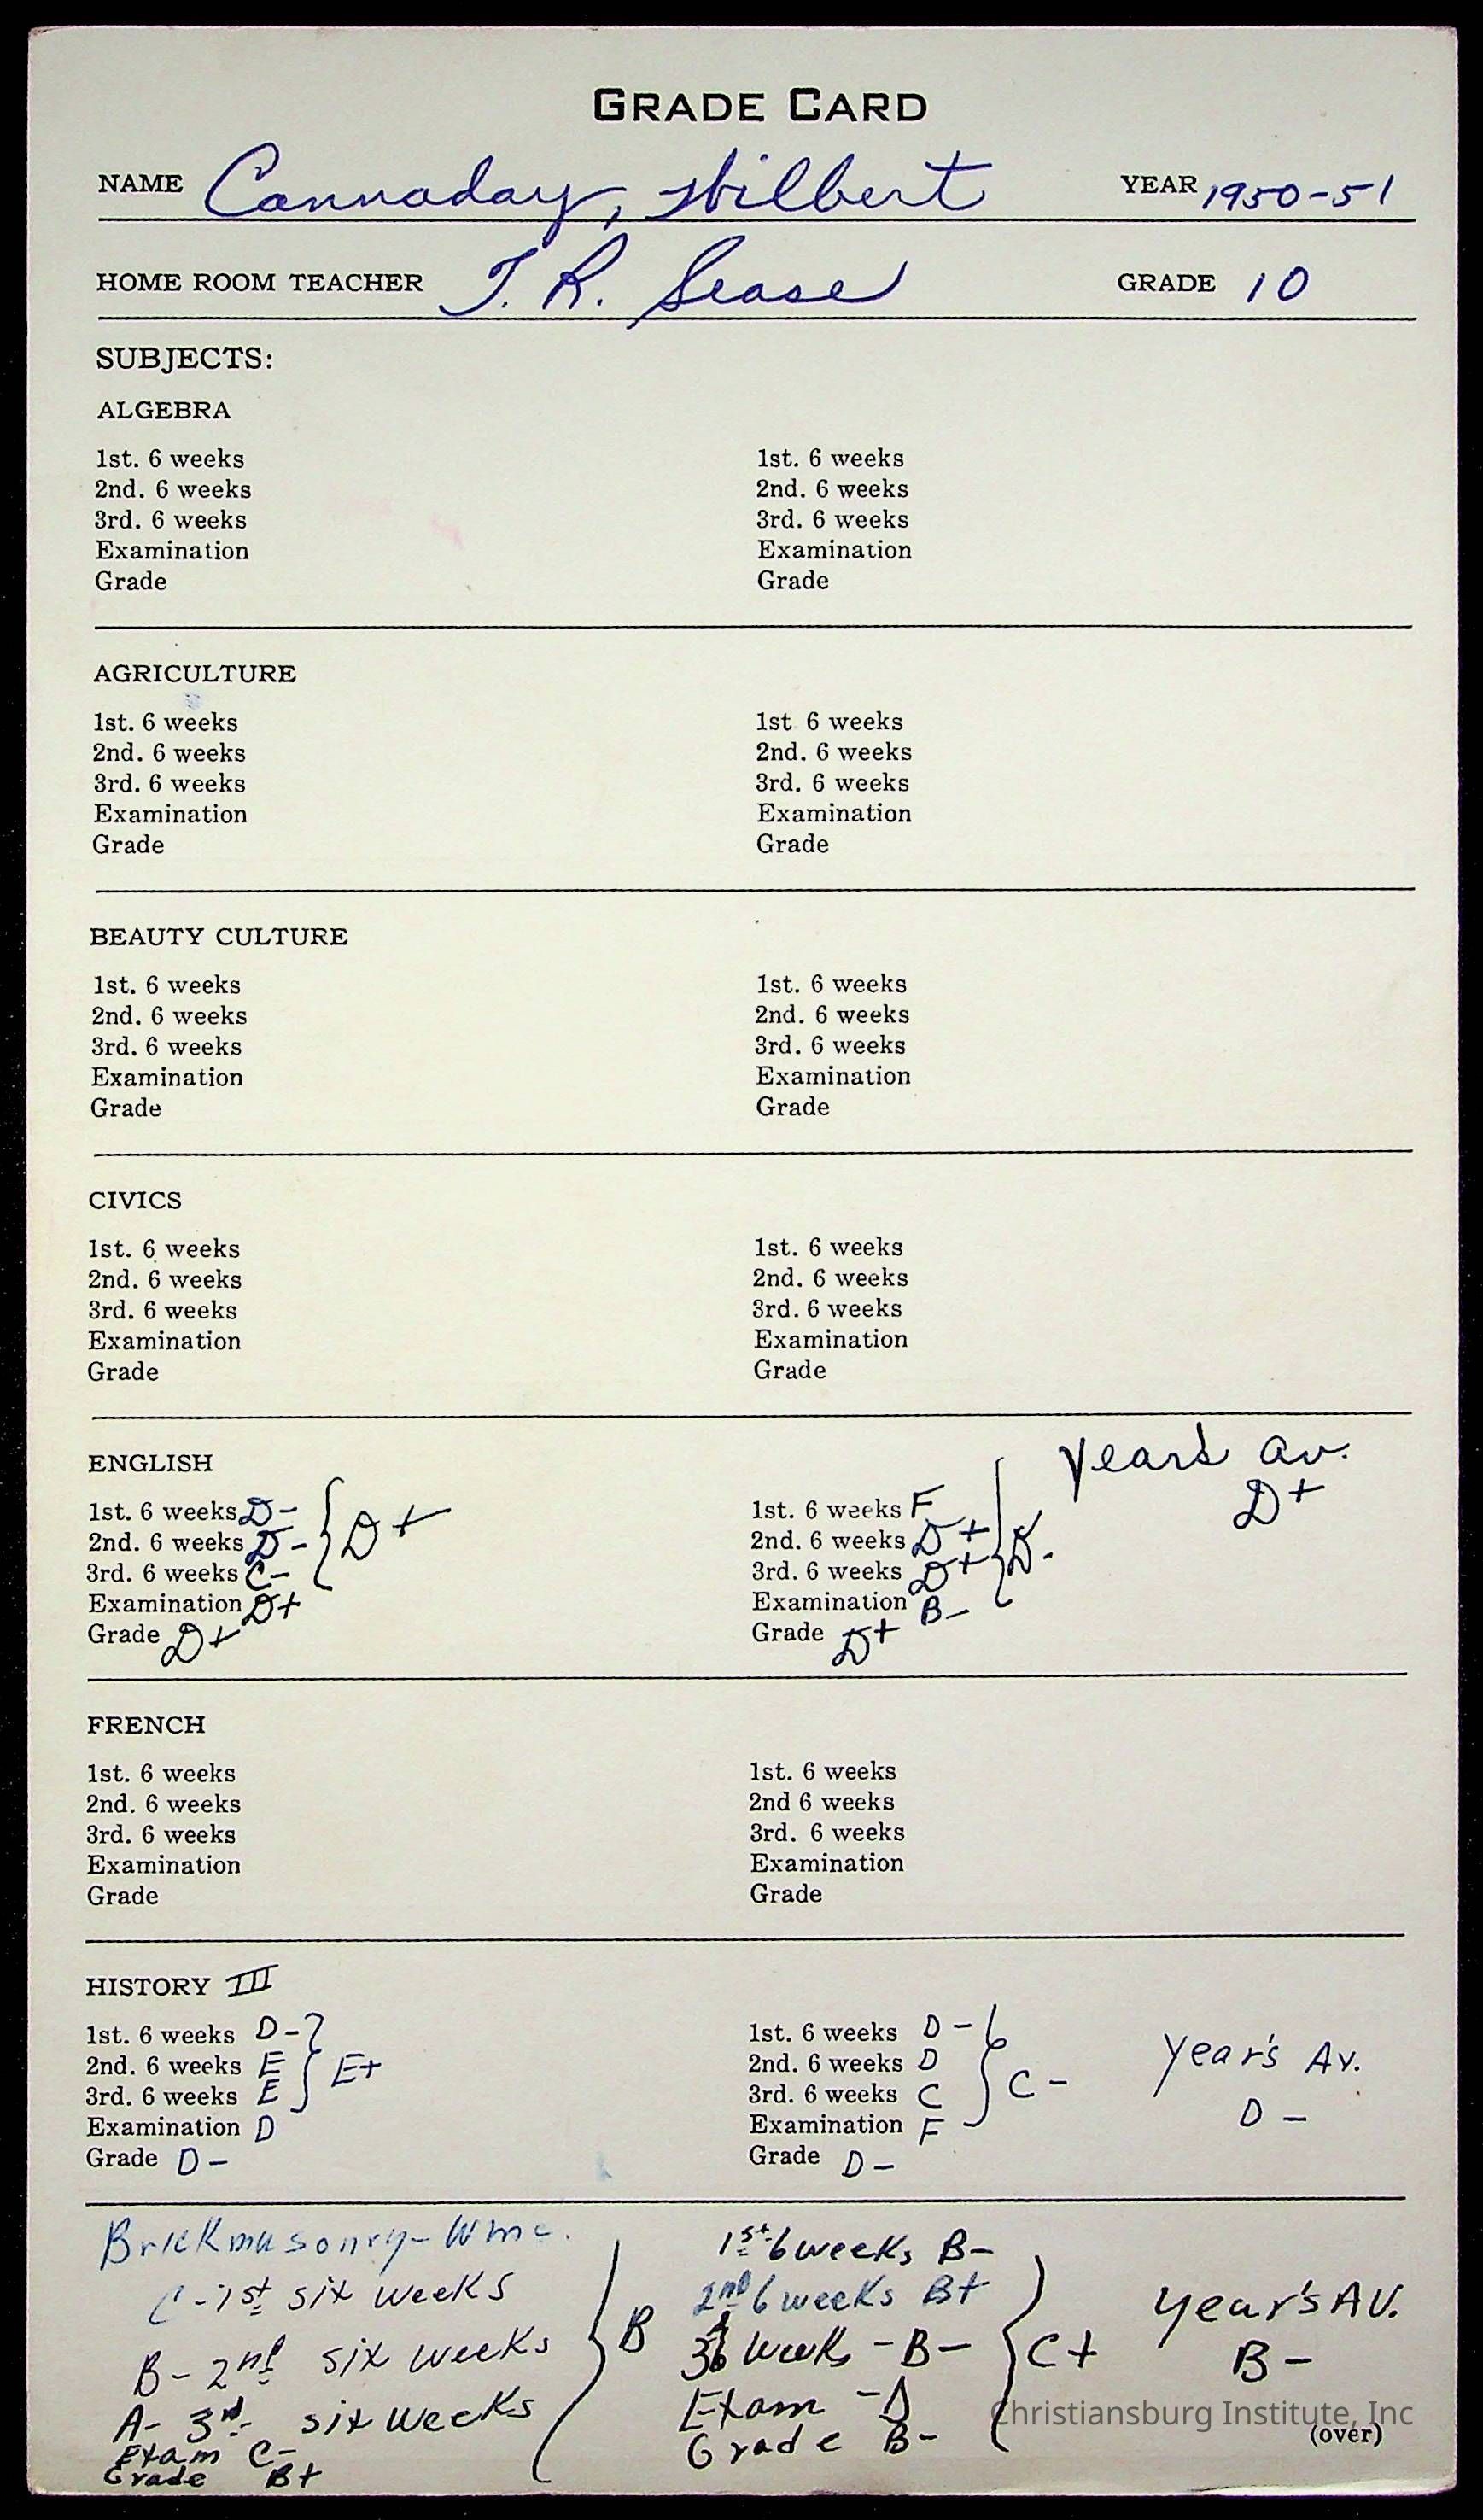 GRADE CARD
NAME Cannaday, Wilbert YEAR 1950-51
HOME ROOM TEACHER T. R. Sease GRADE 10
SUBJECTS:
ALGEBRA
1st. 6 weeks 1st. 6 weeks
2nd. 6 weeks 2nd. 6 weeks
3rd. 6 weeks 3rd. 6 weeks
Examination Examination
Grade Grade
AGRICULTURE
1st. 6 weeks 1st 6 weeks
2nd. 6 weeks 2nd. 6 weeks
3rd. 6 weeks 3rd. 6 weeks
Examination Examination
Grade Grade
BEAUTY CULTURE
1st. 6 weeks 1st. 6 weeks
2nd. 6 weeks 2nd. 6 weeks
3rd. 6 weeks 3rd. 6 weeks
Examination Examination
Grade Grade
CIVICS
1st. 6 weeks 1st. 6 weeks
2nd. 6 weeks 2nd. 6 weeks
3rd. 6 weeks 3rd. 6 weeks
Examination Examination
Grade Grade
ENGLISH Year's Av.
1st. 6 weeks D- D+ 1st. 6 weeks F D+
2nd. 6 weeks D- 2nd. 6 weeks D+ D-
3rd. 6 weeks C- 3rd. 6 weeks D+
Examination D+ Examination B-
Grade D+ Grade D+
FRENCH
1st. 6 weeks 1st. 6 weeks
2nd. 6 weeks 2nd 6 weeks
3rd. 6 weeks 3rd. 6 weeks
Examination Examination
Grade Grade
HISTORY III
1st. 6 weeks D- 1st. 6 weeks D- Year's Av.
2nd. 6 weeks E E+ 2nd. 6 weeks D C-
3rd. 6 weeks E 3rd. 6 weeks C D-
Examination D Examination F
Grade D- Grade D-
Brickmasonry-Wmc. 1st 6 weeks B-
C-1st six weeks 2nd 6 weeks B+ Year's AV.
B-2nd six weeks B 3 6 weeks -B- C+ B-
A-3rd six weeks Exam -D
Exam C- Grade B-
Grade B+
Christiansburg Institute, Inc
(over)